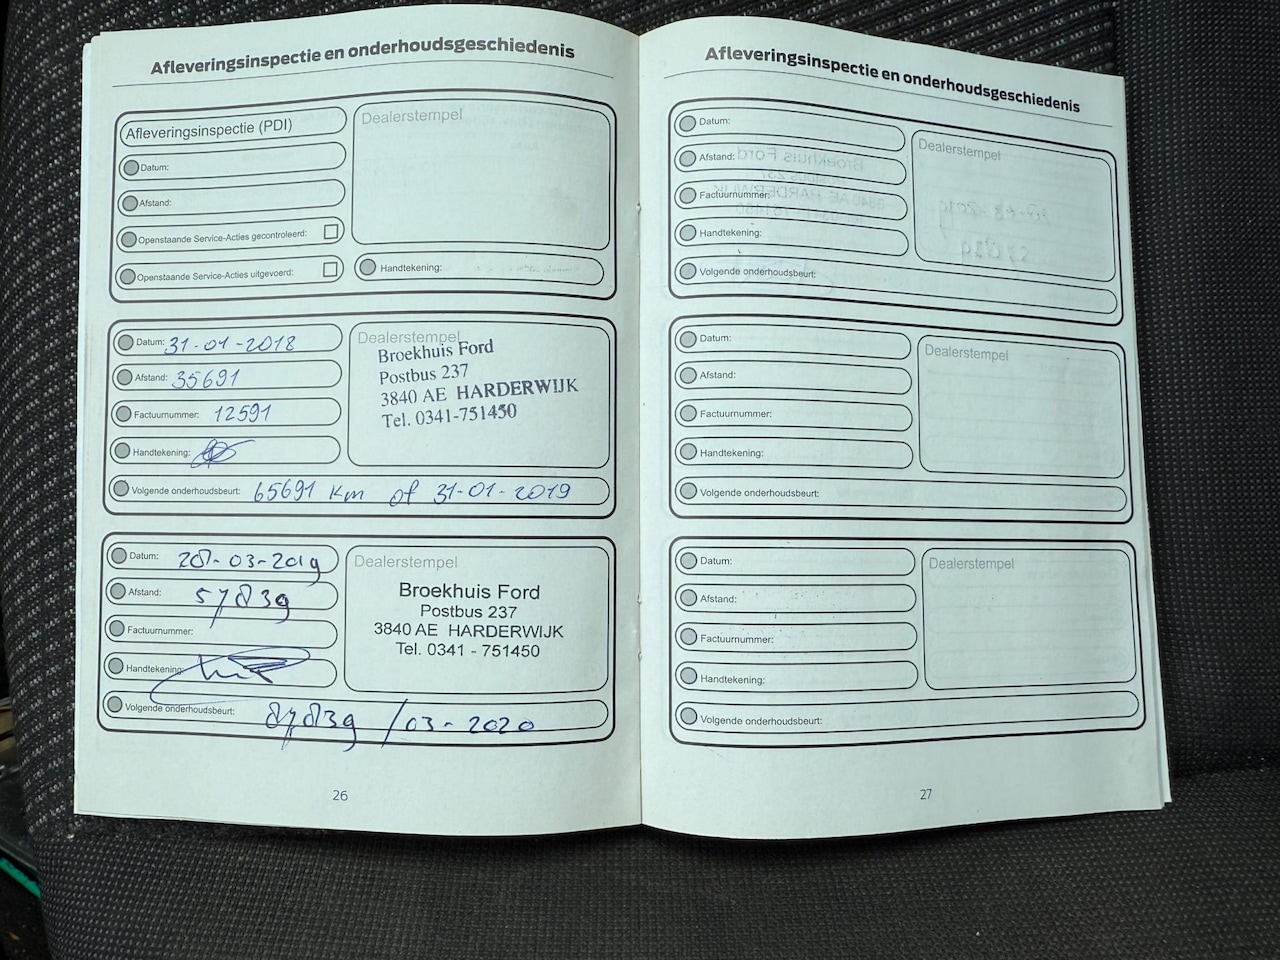 Afleveringsinspectie en onderhoudsgeschiedenis
Afleveringsinspectie (PDI)
Datum:
Afstand:
Openstaande Service-Acties gecontroleerd:
Openstaande Service-Acties uitgevoerd:
Dealerstempel
Handtekening:
Datum: 31-01-2018
Afstand: 35691
Factuurnummer: 12591
Handtekening:
Volgende onderhoudsbeurt: 65691 km of 31-01-2019
Dealerstempel
Broekhuis Ford
Postbus 237
3840 AE HARDERWIJK
Tel. 0341-751450
Datum: 28-03-2019
Afstand: 57839
Factuurnummer:
Handtekening:
Volgende onderhoudsbeurt: 87839 /03-2020
Dealerstempel
Broekhuis Ford
Postbus 237
3840 AE HARDERWIJK
Tel. 0341 - 751450
26
Afleveringsinspectie en onderhoudsgeschiedenis
Datum:
Afstand:
Factuurnummer:
Handtekening:
Volgende onderhoudsbeurt:
Dealerstempel
Datum:
Afstand:
Factuurnummer:
Handtekening:
Volgende onderhoudsbeurt:
Dealerstempel
Datum:
Afstand:
Factuurnummer:
Handtekening:
Volgende onderhoudsbeurt:
Dealerstempel
27